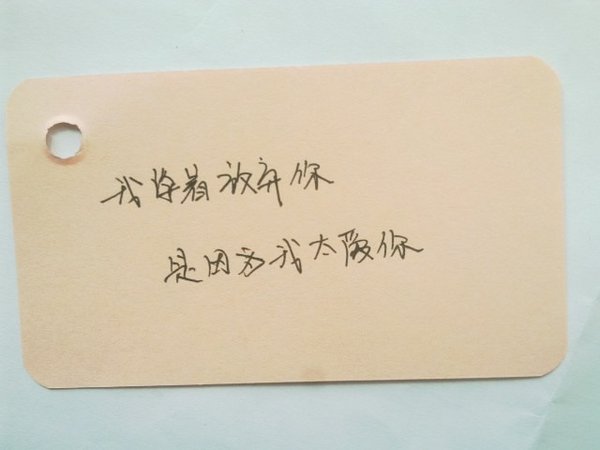 我学着放弃你
是因为我太爱你